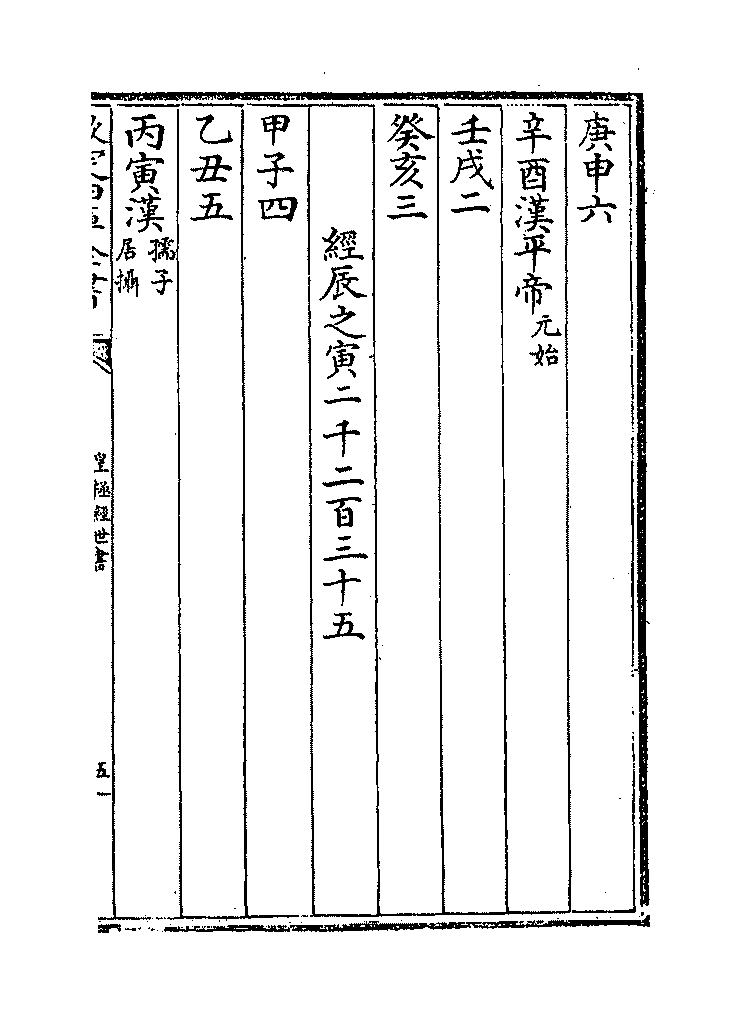 庚申六
辛酉漢平帝元始
壬戌二
癸亥三
經辰之寅二千二百三十五
甲子四
乙丑五
丙寅漢孺子居攝
欽定四庫全書
皇極經世書
五一